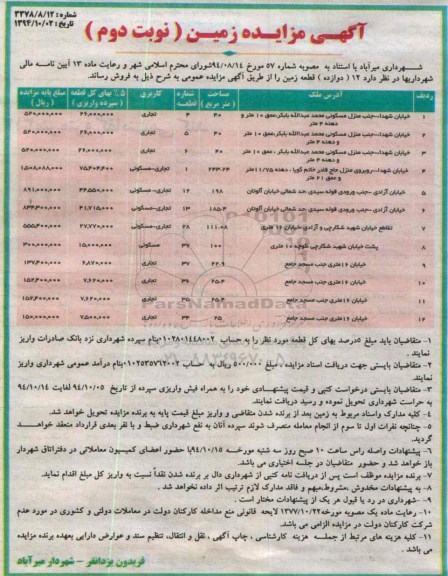 شماره: ۳۳۷۸/۸/۱۲
تاریخ: ۱۳۹۴/۱۰/۰۲
آگهی مزایده زمین ( نوبت دوم )
شهرداری میرآباد با استناد به مصوبه شماره ۵۷ مورخ ۹۴/۰۸/۱۴ شورای محترم اسلامی شهر و رعایت ماده ۱۳ آیین نامه مالی
شهرداریها در نظر دارد ۱۲ ( دوازده ) قطعه زمین را از طریق آگهی مزایده عمومی به شرح ذیل به فروش رساند.
ردیف آدرس ملک مساحت ( متر مربع ) شماره قطعه کاربری ۵٪ بهای کل قطعه ( سپرده واریزی ) مبلغ پایه مزایده ( ریال )
۱ خیابان شهدا-جنب منزل مسکونی محمد عبدالله بابکر،عمق ۱۰ متر و دهنه ۴ متر ۴۰ ۴ تجاری ۲۶,۰۰۰,۰۰۰ ۵۲۰,۰۰۰,۰۰۰
۲ خیابان شهدا-جنب منزل مسکونی محمد عبدالله بابکر،عمق ۱۰ متر و دهنه ۴ متر ۴۰ ۵ تجاری ۲۶,۰۰۰,۰۰۰ ۵۲۰,۰۰۰,۰۰۰
۳ خیابان شهدا-جنب منزل مسکونی محمد عبدالله بابکر ، عمق ۱۰ متر و دهنه ۴ متر ۴۰ ۶ تجاری ۲۶,۰۰۰,۰۰۰ ۵۲۰,۰۰۰,۰۰۰
۴ خیابان شهدا-روبروی منزل حاج قادر خاتم گویا ، دهنه ۱۱/۷۵ متر و عمق ۲۱ متر ۲۴۳-۲۴ ۱ تجاری-مسکونی ۷۵,۴۰۴,۴۰۰ ۱۵۰۸,۰۸۸,۰۰۰
۵ خیابان آزادی -جنب ورودی قوله سیدی -حد شمالی خیابان آلوتان ۱۹۸ ۱۲ تجاری-مسکونی ۴۴,۵۵۰,۰۰۰ ۸۹۱,۰۰۰,۰۰۰
۶ خیابان آزادی -جنب ورودی قوله سیدی -حد شمالی خیابان آلوتان ۱۸۵-۴ ۱۳ تجاری-مسکونی ۴۱,۷۱۵,۰۰۰ ۸۳۴,۳۰۰,۰۰۰
۷ تقاطع خیابان شهید شکارچی و آزادی-خیابان ۱۶ متری ۱۱۱-۰۸ ۲۸ تجاری-مسکونی ۲۷,۷۷۰,۰۰۰ ۵۵۵,۴۰۰,۰۰۰
۸ پشت خیابان شهید شکارچی کوچه ۱۰ متری ۱۰۰ ۳۷ مسکونی ۱۵,۰۰۰,۰۰۰ ۳۰۰,۰۰۰,۰۰۰
۹ خیابان ۱۶متری جنب مسجد جامع ۲۲-۹ ۳۷ تجاری ۶,۸۷۰,۰۰۰ ۱۳۷,۴۰۰,۰۰۰
۱۰ خیابان ۱۶متری جنب مسجد جامع ۲۵-۴ ۳۶ تجاری ۷,۶۲۰,۰۰۰ ۱۵۲,۴۰۰,۰۰۰
۱۱ خیابان ۱۶متری جنب مسجد جامع ۲۵-۴ ۳۵ تجاری ۷,۶۲۰,۰۰۰ ۱۵۲,۴۰۰,۰۰۰
۱۲ خیابان ۱۶متری جنب مسجد جامع ۲۵ ۳۴ تجاری ۷,۵۰۰,۰۰۰ ۱۵۰,۰۰۰,۰۰۰
ParsNamadData
۰۲۱-۸۸۳۴۹۶۷۰-۵
۱- متقاضیان باید مبلغ ۵درصد بهای کل قطعه مورد نظر را به حساب ۰۱۰۲۸۰۱۴۴۸۰۰۲بنام سپرده شهرداری نزد بانک صادرات واریز
نمایند.
۲- متقاضیان بایستی جهت دریافت اسناد مزایده ، مبلغ ۵۰۰/۰۰۰ ریال به حساب ۰۱۰۲۵۳۵۷۶۲۰۰۲بنام درآمد عمومی شهرداری واریز
نمایند.
۳- متقاضیان بایستی درخواست کتبی و قیمت پیشنهادی خود را به همراه فیش واریزی سپرده از تاریخ ۹۴/۱۰/۰۵ لغایت ۹۴/۱۰/۱۴
به حراست شهرداری تحویل نموده و رسید دریافت نمایند.
۴- کلیه مدارک واسناد مربوط به زمین بعد از برنده شدن متقاضی و واریز مبلغ قیمت پایه به برنده مزایده تحویل خواهد شد.
۵- چنانچه نفرات اول تا سوم از انجام معامله منصرف شوند سپرده آنان به نفع شهرداری ضبط و با نفر بعدی قرارداد منعقد خواهــد
گردید.
۶- پیشنهادات واصله راس ساعت ۱۰ صبح روز سه شنبه مورخه ۹۴/۱۰/۱۵با حضور اعضای کمیسیون معاملاتی در دفتراتاق شهردار
باز خواهد شد و حضور متقاضیان در جلسه اختیاری می باشد.
۷- برنده مزایده موظف است پس از دریافت نامه کتبی از شهرداری دال بر برنده شدن نقداً نسبت به واریز کل مبلغ اقدام نماید.
۸- به پیشنهادات مخدوش ،مشروط،مبهم و فاقد مدارک لازم ترتیب اثر داده نخواهد شد .
۹- شهرداری در رد یا قبول هر یک از پیشنهادات مختار است .
۱۰- رعایت ماده یک مصوبه مورخه۱۳۷۷/۱۰/۲۲ لایحه قانونی منع مداخله کارکنان دولت در معاملات دولتی و کشوری در مورد عدم
شرکت کارکنان دولت در مزایده الزامی می باشد.
۱۱- کلیه هزینه های مرتبط از جمله هزینه کارشناسی ، چاپ آگهی ، نقل و انتقال، تنظیم سند و عوارض دارایی بعهده برنده مزایده
می باشد.
فریدون یزدانفر - شهردار میرآباد